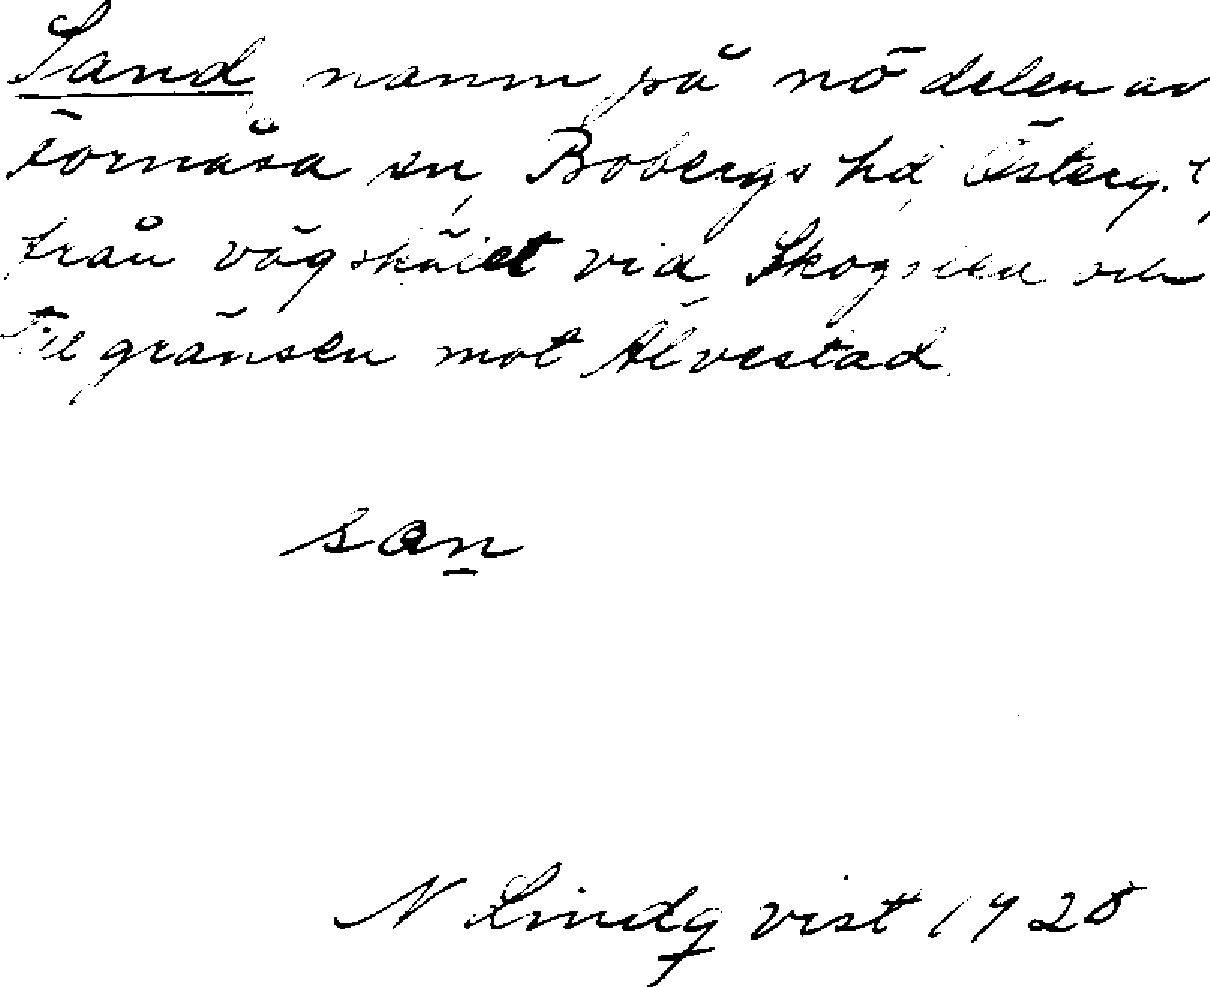 Sand, namn på nö delen av
Fornåsa sn, Bobergs hd, Österg.
från vägskälet vid Skogslen och
till gränsen mot Älvestad.
san
N Lindqvist 1928